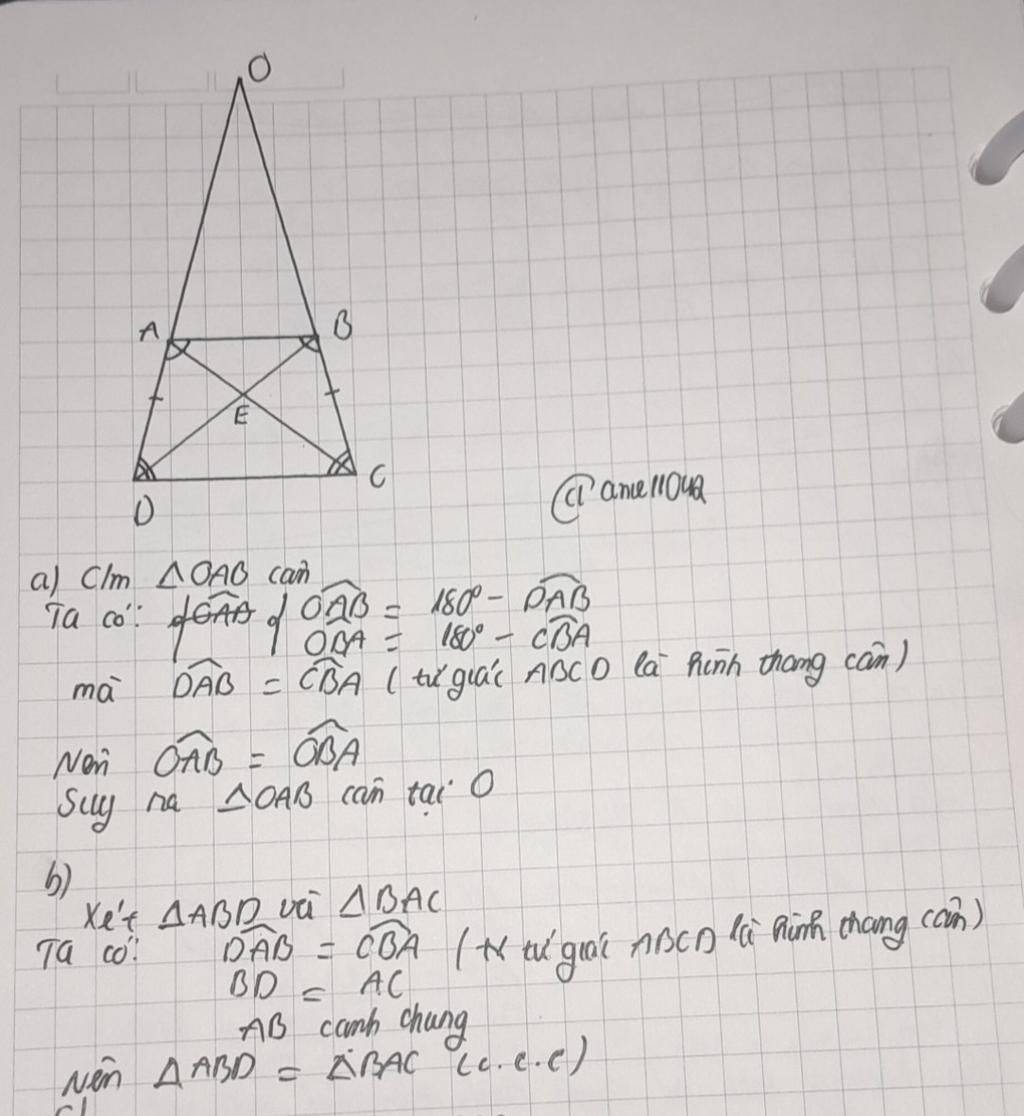 O
A B
E
D C
@amel1042
a) C/m △OAB cân
Ta có: OAB = 180° - DAB
OBA = 180° - CBA
mà DAB = CBA ( tứ giác ABCD là hình thang cân )
Nên OAB = OBA
Suy ra △OAB cân tại O
b)
Xét △ABD và △BAC
Ta có: DAB = CBA ( tứ giác ABCD là hình thang cân )
BD = AC
AB cạnh chung
Nên △ABD = △BAC (c.c.c)